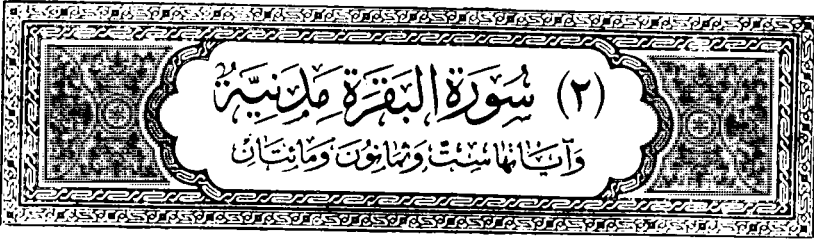 (٢) سُورَةُ الْبَقَرَةِ مَدَنِيَّةٌ
وَآيَاتُهَا سِتٌّ وَثَمَانُونَ وَمَائَتَانِ